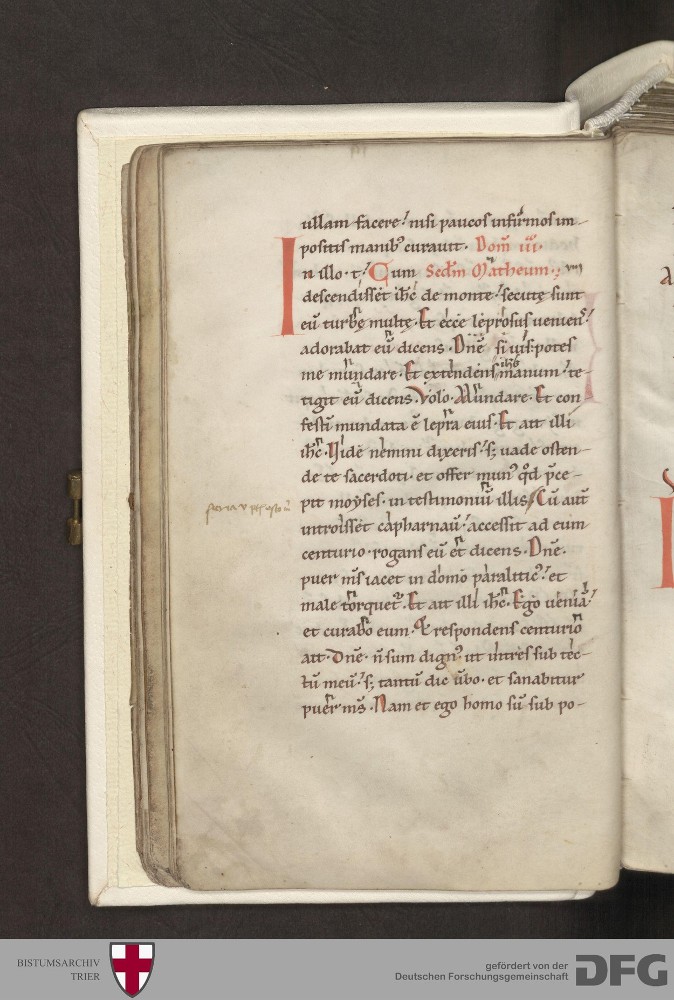 ullam facere. nisi paucos infirmos im-
positis manib; curauit. Dom̄ iii.
In illo. t. Cum Scd̄m Matheum. viii
descendisset ih̄c de monte. secutę sunt
eū turbę multę. Et ecce leprosus ueniens.
adorabat eū dicens. Dn̄e si uis potes
me mundare. Et extendens ih̄s manum. te-
tigit eū dicens. Volo. Mundare. Et con
festī mundata ē lepra eius. Et ait illi
ih̄c. Vide nemini dixeris. s; uade osten-
de te sacerdoti. et offer mun᷒ qd̄ p̄ce-
pit moyses. in testimoniū illis. Cū aut̄
introisset capharnaū. accessit ad eum
centurio. rogans eū et dicens. Dn̄e.
puer m̄s iacet in domo paralitic᷒. et
male torquet᷑. Et ait illi ih̄c. Ego ueniā.
et curabo eum. Et respondens centurio
ait. Dn̄e. n̄ sum dign᷒ ut intres sub tec-
tū meū. s; tantū dic ūbo. et sanabitur
puer m̄s. Nam et ego homo sū sub po-
BISTUMSARCHIV
TRIER
gefördert von der
Deutschen Forschungsgemeinschaft
DFG